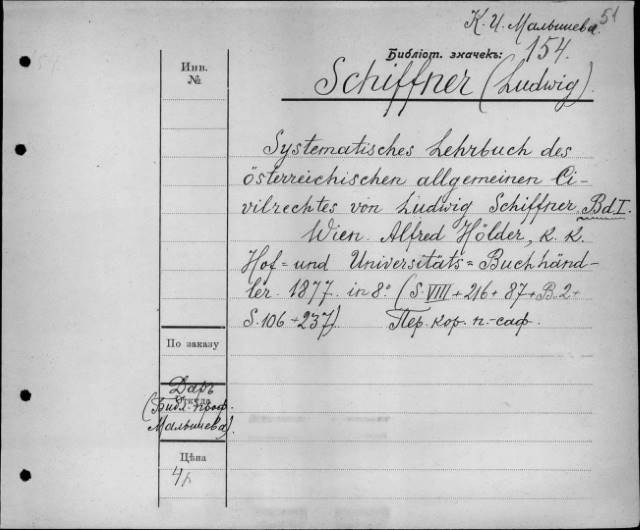 К. И. Малышева. 51
Библіот. значекъ: 154.
Инв.
№
Schiffner (Ludwig).
Systematisches Lehrbuch des
österreichischen allgemeinen Ci-
vilrechtes von Ludwig Schiffner. Bd I.
Wien. Alfred Hölder, K. K.
Hof= und Universitäts=Buchhänd-
ler. 1877. in 8° (S. VIII + 216 + 87 + B. 2 +
S. 106 + 237) Пер. кор. п.-саф.
По заказу
Даръ
Откуда
(Библ. проф.
Малышева).
Цѣна